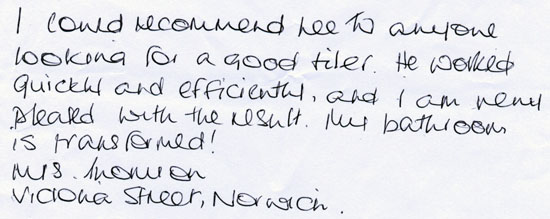 I could recommend Lee to anyone
looking for a good tiler. He worked
quickly and efficiently, and I am very
pleased with the result. My bathroom
is transformed!
Mrs.
Victoria Street, Norwich.